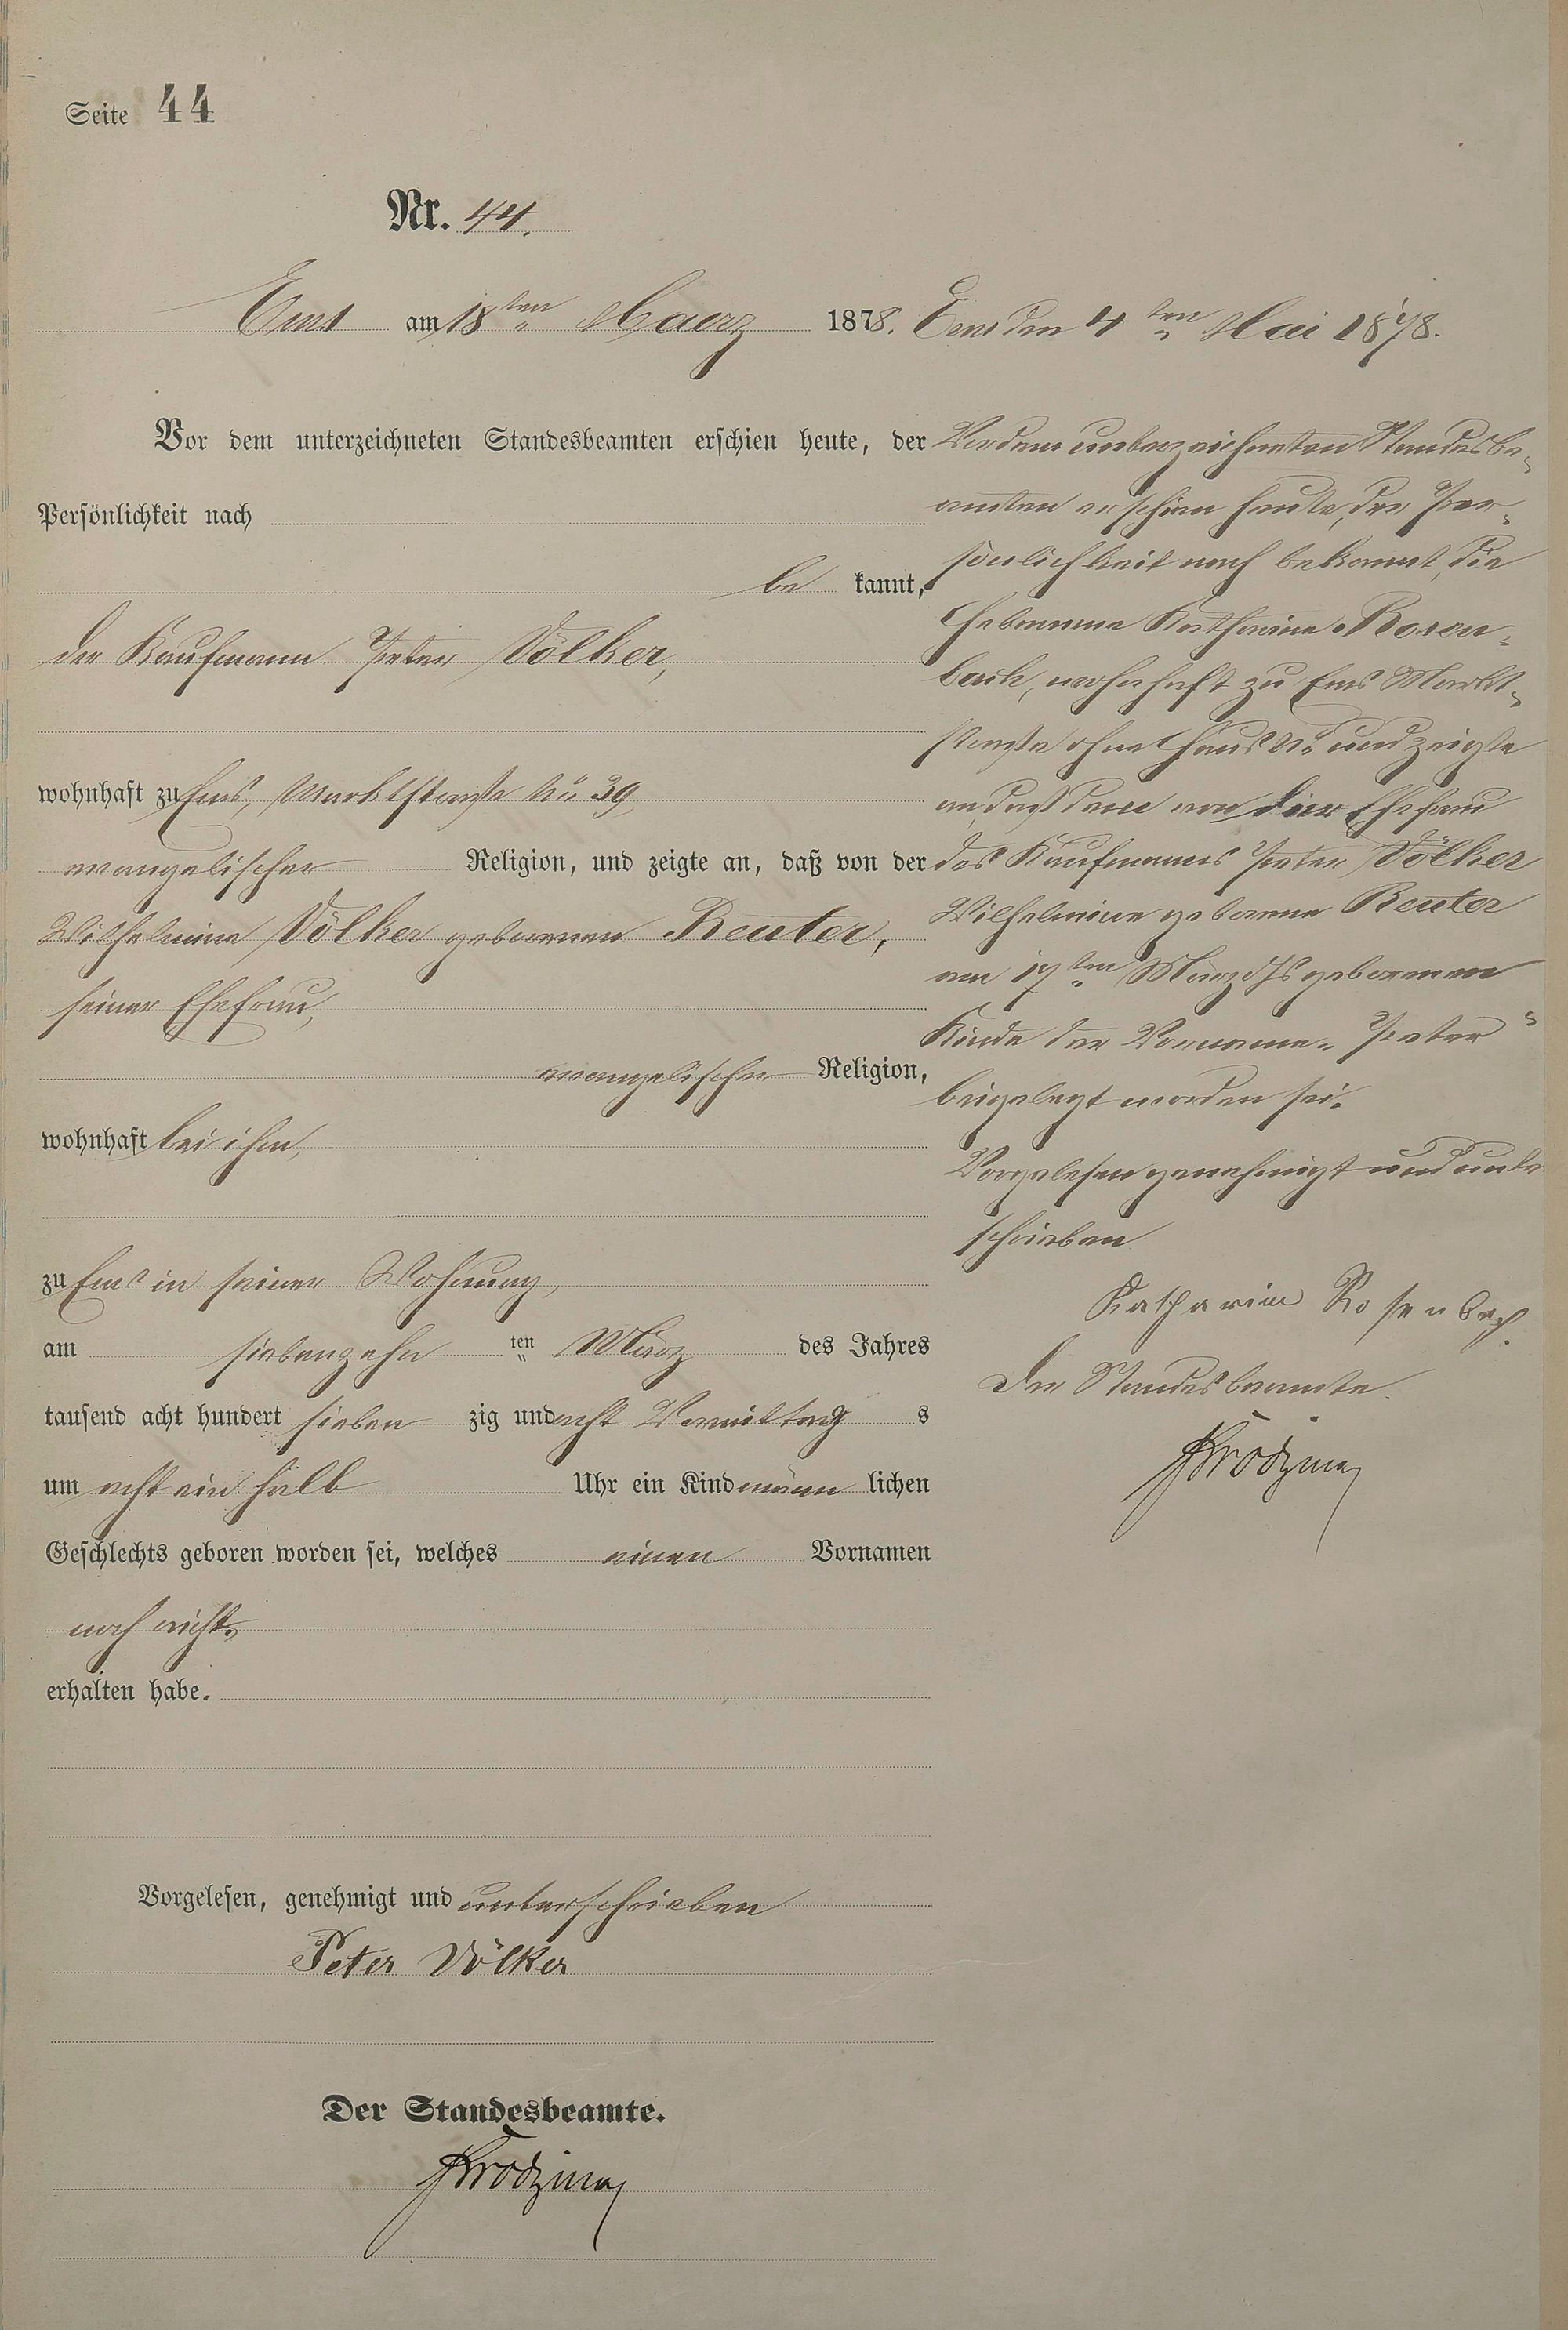 Seite 44
Nr. 44.
Ems am 18ten Maerz 1878.
Vor dem unterzeichneten Standesbeamten erschien heute, der
Persönlichkeit nach
be kannt,
der Kaufmann Peter Völker,
wohnhaft zu Ems, Marktstraße No 39,
evangelischer Religion, und zeigte an, daß von der
Wilhelmine Völker geborenen Reuter,
seiner Ehefrau,
evangelischer Religion,
wohnhaft bei ihm,
zu Ems in seiner Wohnung,
am siebenzehn ten März des Jahres
tausend acht hundert sieben zig und acht Vormittag s
um acht ein halb Uhr ein Kind männ lichen
Geschlechts geboren worden sei, welches einen Vornamen
noch nicht
erhalten habe.
Vorgelesen, genehmigt und unterschrieben
Peter Völker
Der Standesbeamte.
Ems den 4ten Mai 1878.
Vor dem unterzeichneten Standesbe-
amten erschien heute, der Per-
sönlichkeit nach bekannt, die
Hebamme Katharina Rosen-
bach, wohnhaft zu Ems Markt-
straße ohne Haus No und zeigte
an, daß dem von der Ehefrau
des Kaufmanns Peter Völker
Wilhelmine geborene Reuter
am 17ten März djs geborenen
Kinde der Vorname „Peter"
beigelegt worden sei.
Vorgelesen genehmigt und unter
schrieben
Katharina Rosenbach.
Der Standesbeamte.